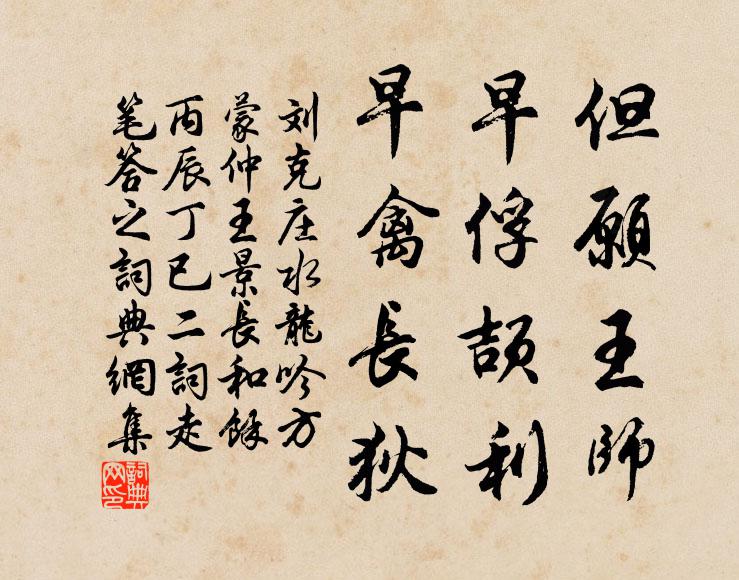 但願王師
早俘頡利
早禽長狄
刘克庄水龍吟方
蒙仲王景長和餘
丙辰丁巳二詞走
笔答之詞典網集
詞典網印